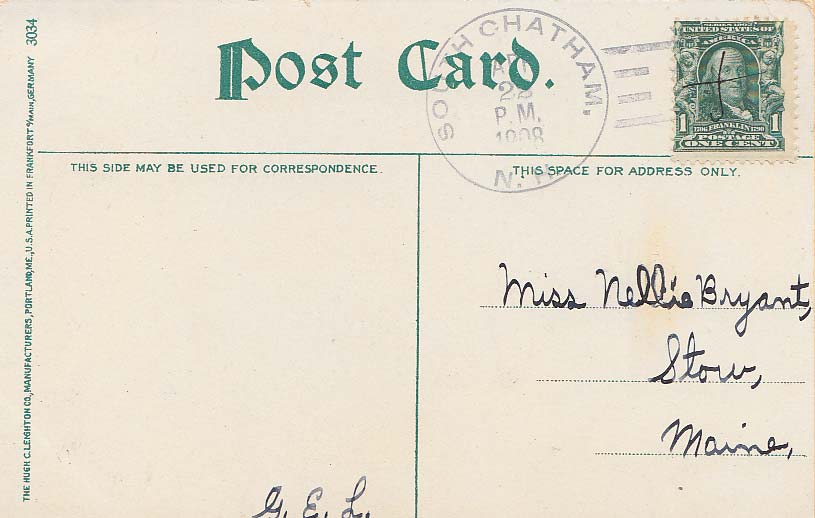 Post Card.
SOUTH CHATHAM,
22
P.M.
1908
N. H.
UNITED STATES OF
AMERICA
1 1
1706 FRANKLIN 1790
POSTAGE
ONE CENT
THIS SIDE MAY BE USED FOR CORRESPONDENCE.
THIS SPACE FOR ADDRESS ONLY.
Miss Nellie Bryant,
Stow,
Maine,
G. E. L.
THE HUGH C. LEIGHTON CO., MANUFACTURERS, PORTLAND, ME., U.S.A. PRINTED IN FRANKFORT o/MAIN, GERMANY 3034